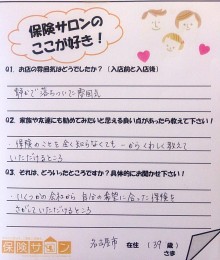 保険サロンの
ここが好き！
Q1. お店の雰囲気はどうでしたか？（入店前と入店後）
静かで落ちついた雰囲気
Q2. 家族や友達にも勧めてみたいと思える良い点があったら教えて下さい！
保険のことを全く知らなくても一からくわしく教えて
いただけるところ
Q3. それは、どういったところですか？具体的にお聞かせ下さい！
いくつかの会社から自分の希望に合った保険を
さがしていただけるところ
保険サロン
名古屋市 在住 （39歳）
さま